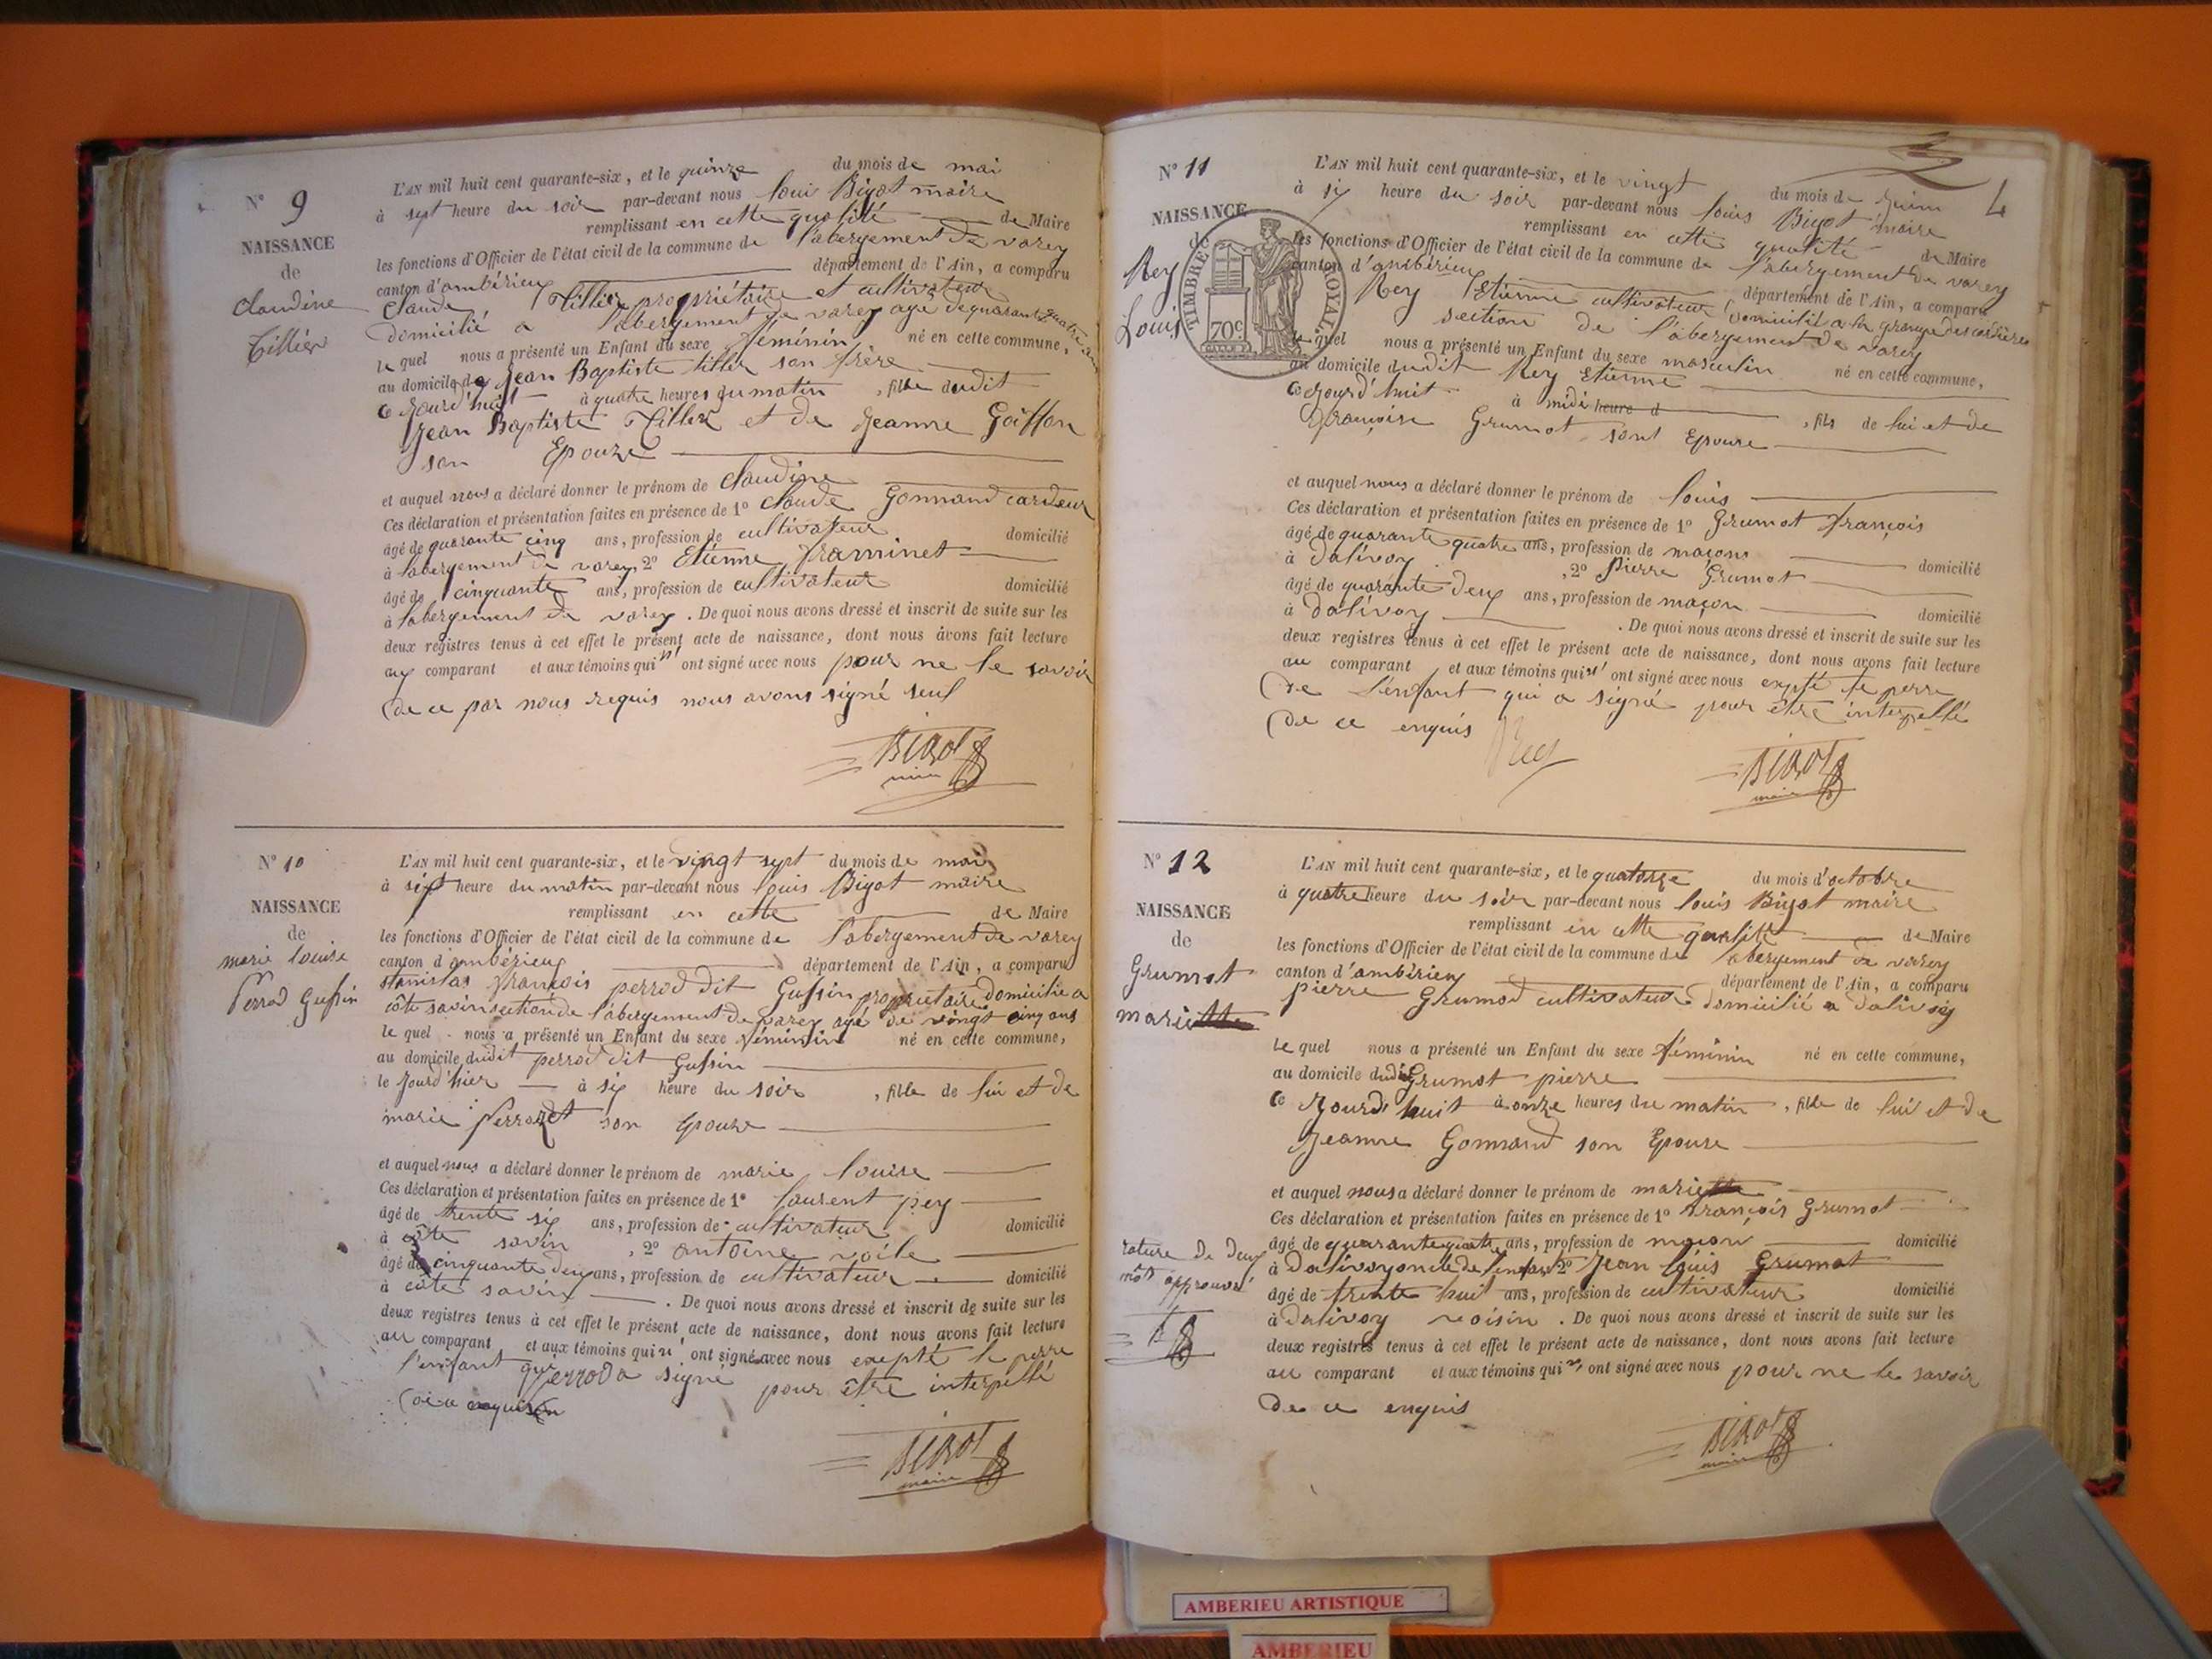 N° 9
NAISSANCE
de
Claudine
Tillier
L'AN mil huit cent quarante-six, et le quinze du mois de mai
à sept heure du soir par-devant nous loui Bigot maire
remplissant en cette qualité de Maire
les fonctions d'Officier de l'état civil de la commune de l'abergement de varey
canton d'ambérieu département de l'Ain, a comparu
Claude Tillier propriétaire et cultivateur
domicilié a l'abergement de varey agé de quarante quatre ans
le quel nous a présenté un Enfant du sexe féminin né en cette commune,
au domicile de Jean Baptiste tiller son frère
ce Jourd'huit à quatre heures du matin, fille dudit
Jean Baptiste Tiller et de Jeanne Goiffon
son Epouze
et auquel nous a déclaré donner le prénom de Claudine
Ces déclaration et présentation faites en présence de 1° Claude Gonnand cardeur
âgé de quarante cinq ans, profession de cultivateur domicilié
à l'abergement de varey, 2° Etienne framinet
âgé de cinquante ans, profession de cultivateur domicilié
à l'abergement de varey. De quoi nous avons dressé et inscrit de suite sur les
deux registres tenus à cet effet le présent acte de naissance, dont nous avons fait lecture
au comparant et aux témoins qui n' ont signé avec nous pour ne le savoir
de ce par nous requis nous avons signé seul
BIGOT
maire
N° 10
NAISSANCE
de
marie louise
Perrod Guffin
L'AN mil huit cent quarante-six, et le vingt sept du mois de mai
à sept heure du matin par-devant nous louis Bigot maire
remplissant en cette de Maire
les fonctions d'Officier de l'état civil de la commune de l'abergement de varey
canton d'ambérieu département de l'Ain, a comparu
stanislas françois perrod dit Guffin propriétaire domicilié a
côte savin section de l'abergement de varey agé de vingt cinq ans
le quel nous a présenté un Enfant du sexe féminin né en cette commune,
au domicile dudit perrod dit Guffin
le Jourd'hier à six heure du soir, fille de lui et de
marie Perrozet son Epouze
et auquel nous a déclaré donner le prénom de marie louise
Ces déclaration et présentation faites en présence de 1° laurent pey
âgé de trente six ans, profession de cultivateur domicilié
à côte savin, 2° antoine voile
âgé de cinquante deux ans, profession de cultivateur domicilié
à côte savin. De quoi nous avons dressé et inscrit de suite sur les
deux registres tenus à cet effet le présent acte de naissance, dont nous avons fait lecture
au comparant et aux témoins qui n' ont signé avec nous exepté le perre
l'enfant qui a signé pour être interpellé
BIGOT
maire
4
N° 11
NAISSANCE
de
Rey
Louis
TIMBRE ROYAL
70c
L'AN mil huit cent quarante-six, et le vingt du mois de Juin
à six heure du soir par-devant nous louis Bigot maire
remplissant en cette qualité de Maire
les fonctions d'Officier de l'état civil de la commune de l'abergement de varey
canton d'ambérieu département de l'Ain, a comparu
Rey Etienne cultivateur domicilié a la grange
section de l'abergement de varey
le quel nous a présenté un Enfant du sexe masculin né en cette commune,
au domicile dudit Rey Etienne
ce Jourd'huit à midi heure d, fils de lui et de
françoise Grumot sont Epouse
et auquel nous a déclaré donner le prénom de louis
Ces déclaration et présentation faites en présence de 1° Grumot françois
âgé de quarante quatre ans, profession de maçons domicilié
à dalivoy, 2° Pierre Grumot
âgé de quarante deux ans, profession de maçon domicilié
à dalivoy. De quoi nous avons dressé et inscrit de suite sur les
deux registres tenus à cet effet le présent acte de naissance, dont nous avons fait lecture
au comparant et aux témoins qui n' ont signé avec nous expté le perre
de l'enfant qui a signé pour être interpellé
de ce enquis
Rey
BIGOT
maire
N° 12
NAISSANCE
de
Grumot
marie
L'AN mil huit cent quarante-six, et le quatorze du mois d'octobre
à quatre heure du soir par-devant nous louis Bigot maire
remplissant en cette qualité de Maire
les fonctions d'Officier de l'état civil de la commune de l'abergement de varey
canton d'ambérieu département de l'Ain, a comparu
pierre Grumod cultivateur domicilié a dalivoy
le quel nous a présenté un Enfant du sexe féminin né en cette commune,
au domicile dudit Grumot pierre
ce Jourd'huit à onze heures du matin, fille de lui et de
Jeanne Gonnand son Epouse
et auquel nous a déclaré donner le prénom de marie
Ces déclaration et présentation faites en présence de 1° françois Grumot
âgé de quarante quatre ans, profession de maçon domicilié
à dalivoy oncle de l'enfant 2° Jean louis Grumot
âgé de trente huit ans, profession de cultivateur domicilié
à dalivoy voisin. De quoi nous avons dressé et inscrit de suite sur les
deux registres tenus à cet effet le présent acte de naissance, dont nous avons fait lecture
au comparant et aux témoins qui n' ont signé avec nous pour ne le savoir
de ce enquis
rature de deux
mots approuvé
BIGOT
maire
AMBERIEU ARTISTIQUE
AMBERIEU